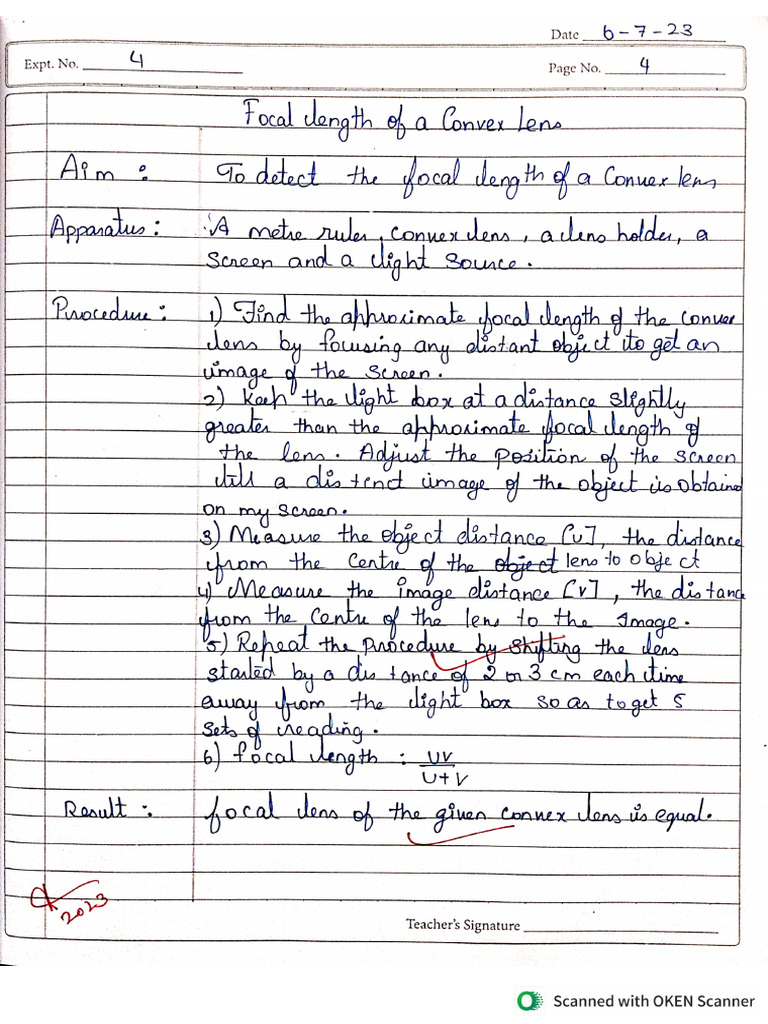 Date 6-7-23
Expt. No. 4
Page No. 4
Focal length of a Convex Lens
Aim : To detect the focal length of a Convex lens
Apparatus : A metre ruler, convex lens, a lens holder, a
screen and a light source.
Procedure : 1) Find the approximate focal length of the convex
lens by focusing any distant object to get an
image of the screen.
2) Keep the light box at a distance slightly
greater than the approximate focal length of
the lens. Adjust the position of the screen
till a distenct image of the object is obtained
on my screen.
3) Measure the object distance [u], the distance
from the centre of the object lens to object
4) Measure the image distance [v], the distanc
from the centre of the lens to the image.
5) Repeat the procedure by shifting the lens
started by a distance of 2 or 3 cm each time
away from the light box so as to get 5
sets of reading.
6) focal length : uv
u+v
Result : focal lens of the given convex lens is equal.
2023
Teacher's Signature
Scanned with OKEN Scanner